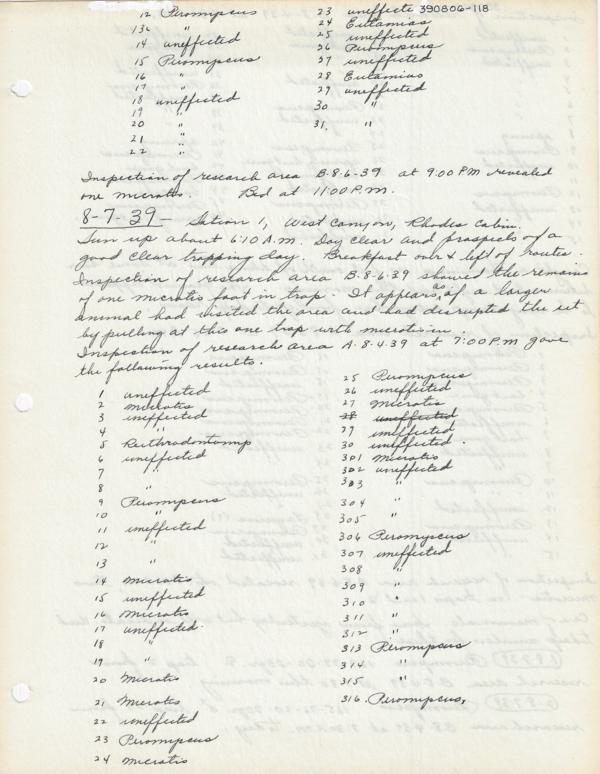 12 Peromyscus
13 "
14 uneffected
15 Peromyscus
16 "
17 "
18 uneffected
19 "
20 "
21 "
22 "
23 uneffecte 390806-118
24 Eutamias
25 uneffected
36 Peromyscus
37 uneffected
28 Eutamias
29 uneffected
30 "
31. "
Inspection of research area B-8-6-39 at 9:00 P.M. revealed
one microtis. Bed at 11:00 P.M.
8-7-39- Station 1, West Canyon, Rhodes Cabin.
Turn up about 6:10 A.M. Day clear and prospects of a
good clear trapping day. Breakfast over & left of routes.
Inspection of research area B-8-6-39 showed the remains
of one microtis foot in trap. It appears as if a larger
animal had visited the area and had disrupted the set
by pulling at this one trap with microtis in.
Inspection of research area A-8-4-39 at 7:00 P.M gave
the following results.
1 uneffected
2 Microtis
3 uneffected
4 "
5 Reithrodontomys
6 uneffected
7 "
8 "
9 Peromyscus
10 "
11 uneffected
12 "
13 "
14 Microtis
15 uneffected
16 Microtis
17 uneffected.
18 "
19 "
20 Microtis
21 Microtis
22 uneffected
23 Peromyscus
24 Microtis
25 Peromyscus
26 uneffected
27 Microtis
28 uneffected
29 uneffected
30 uneffected.
301 Microtis
302 uneffected
303 "
304 "
305 "
306 Peromyscus
307 uneffected
308 "
309 "
310 "
311 "
312 "
313 Peromyscus
314 "
315 "
316. Peromyscus,